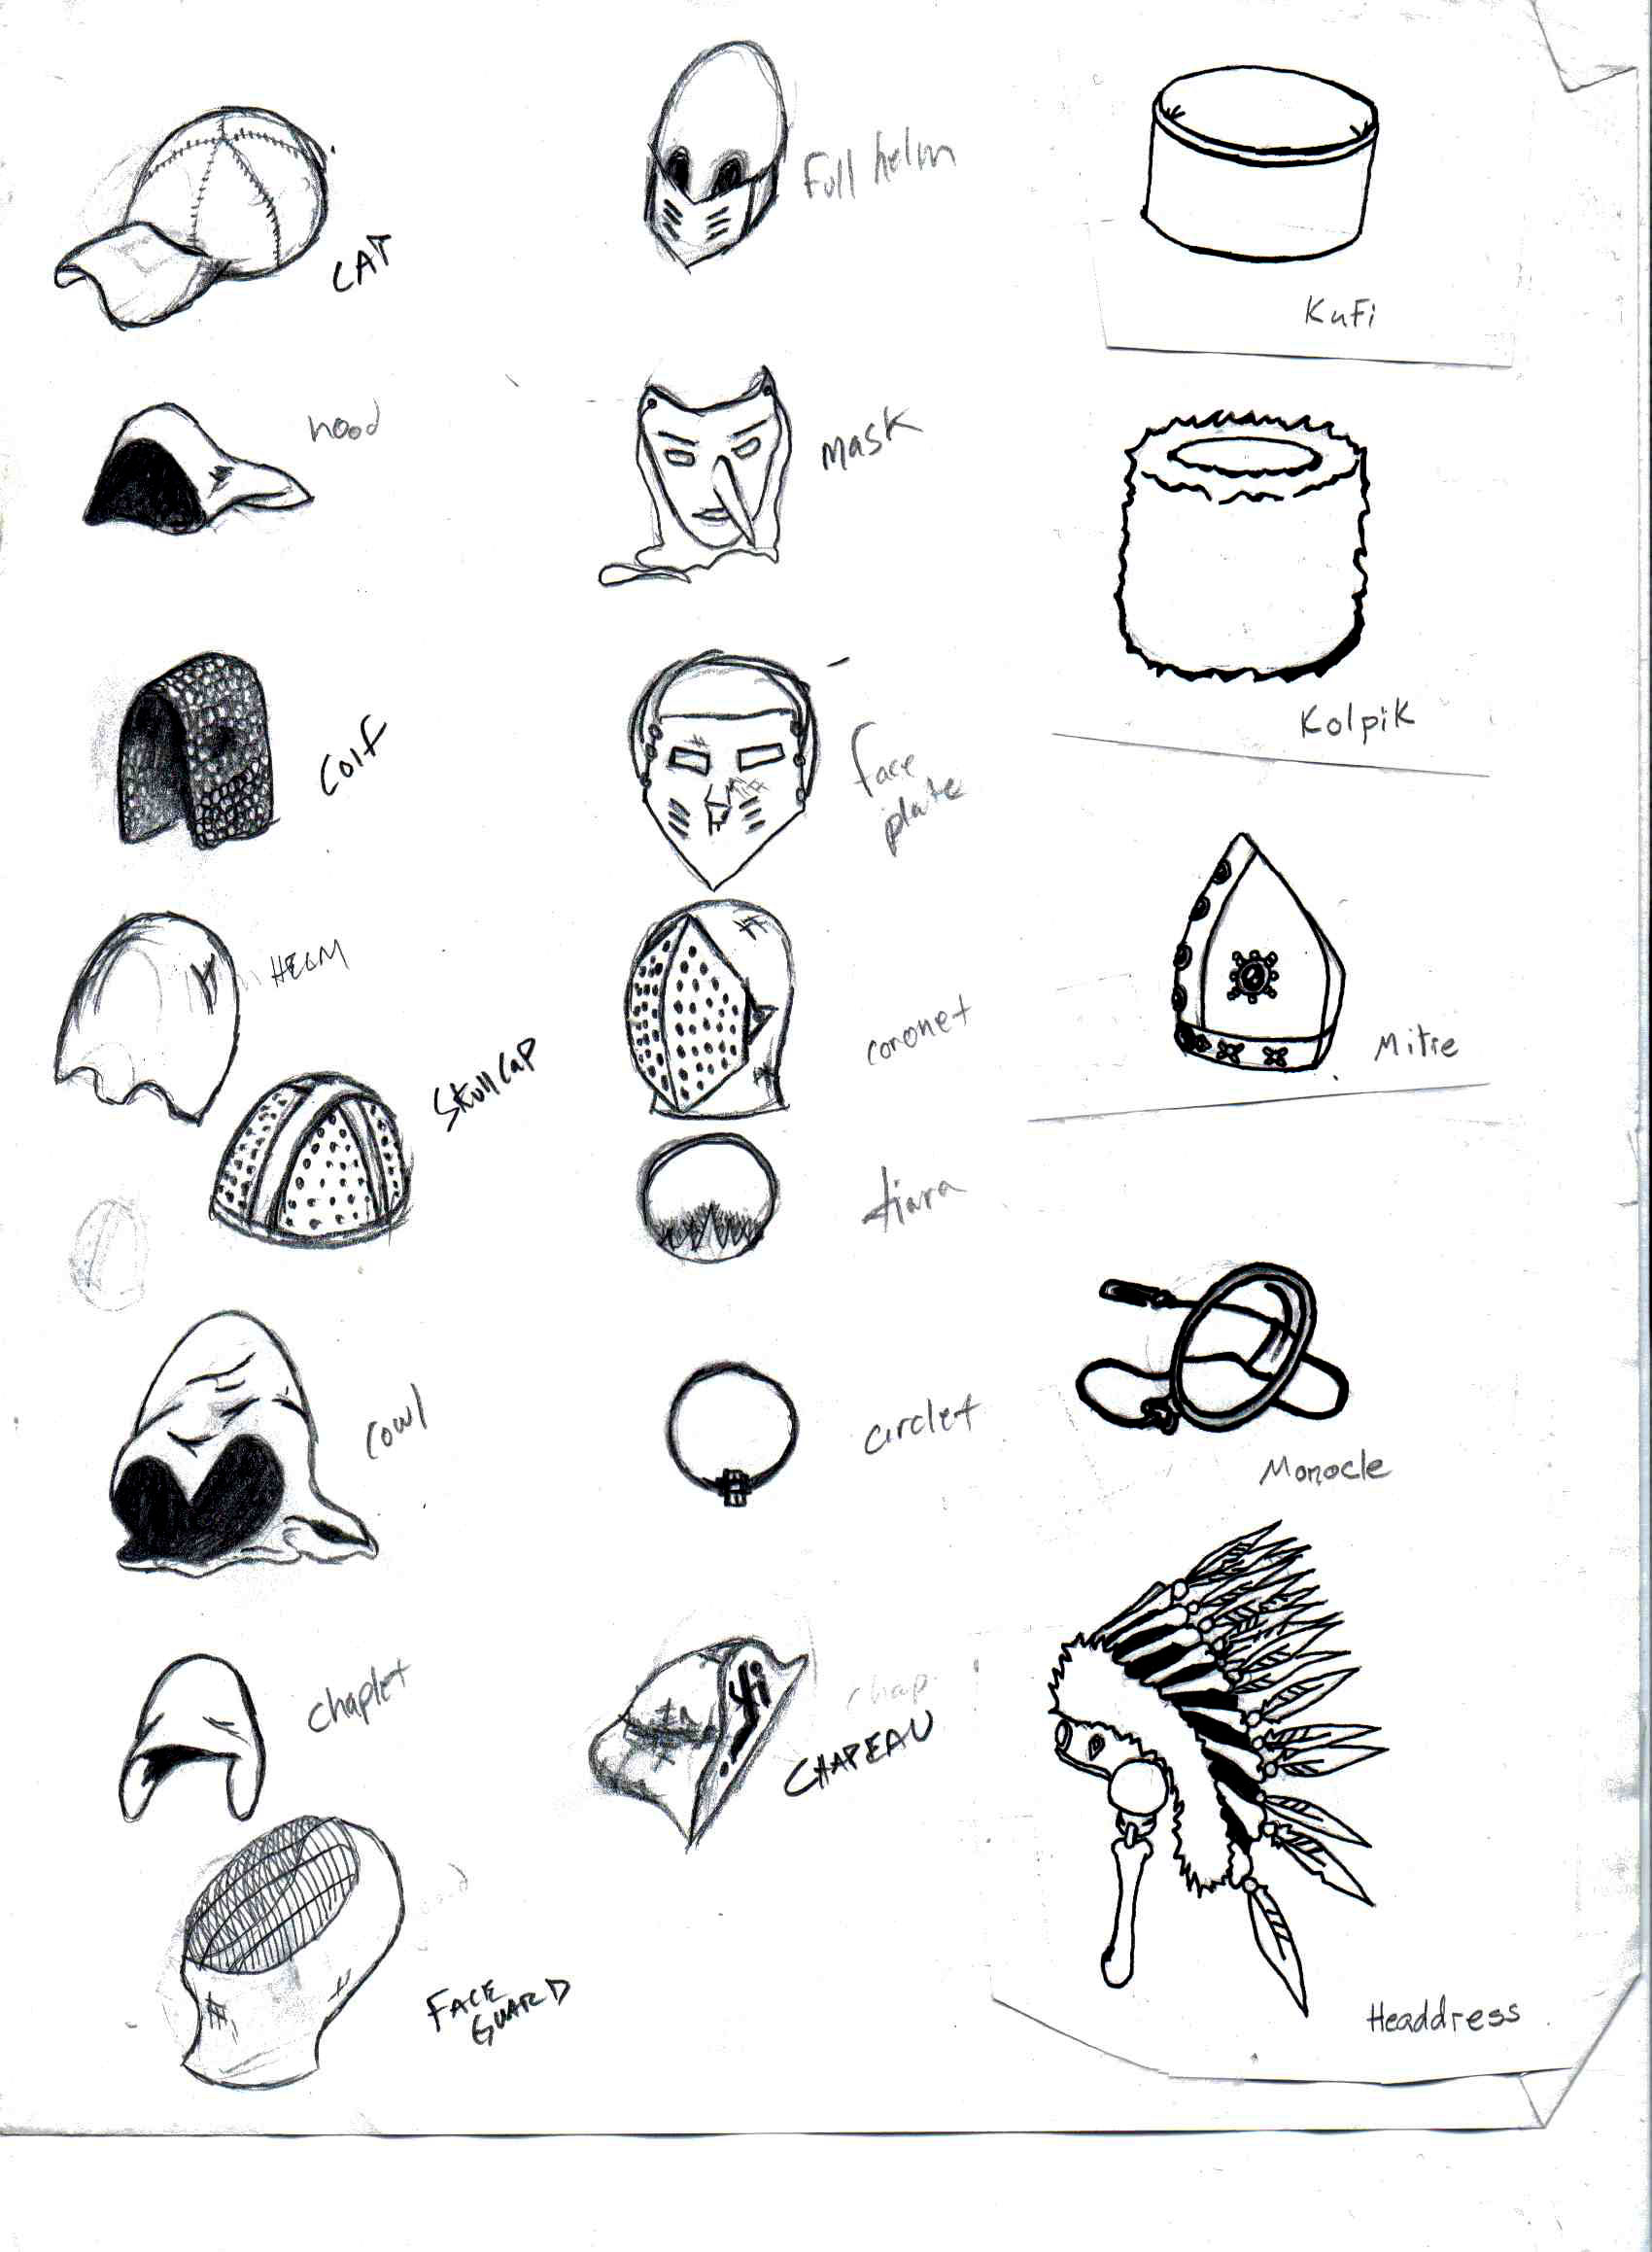 CAP
hood
Coif
HELM
Skullcap
cowl
chaplet
FACE
GUARD
Full helm
mask
face
plate
coronet
tiara
circlet
chap
CHAPEAU
Kufi
Kolpik
Mitre
Monocle
Headdress